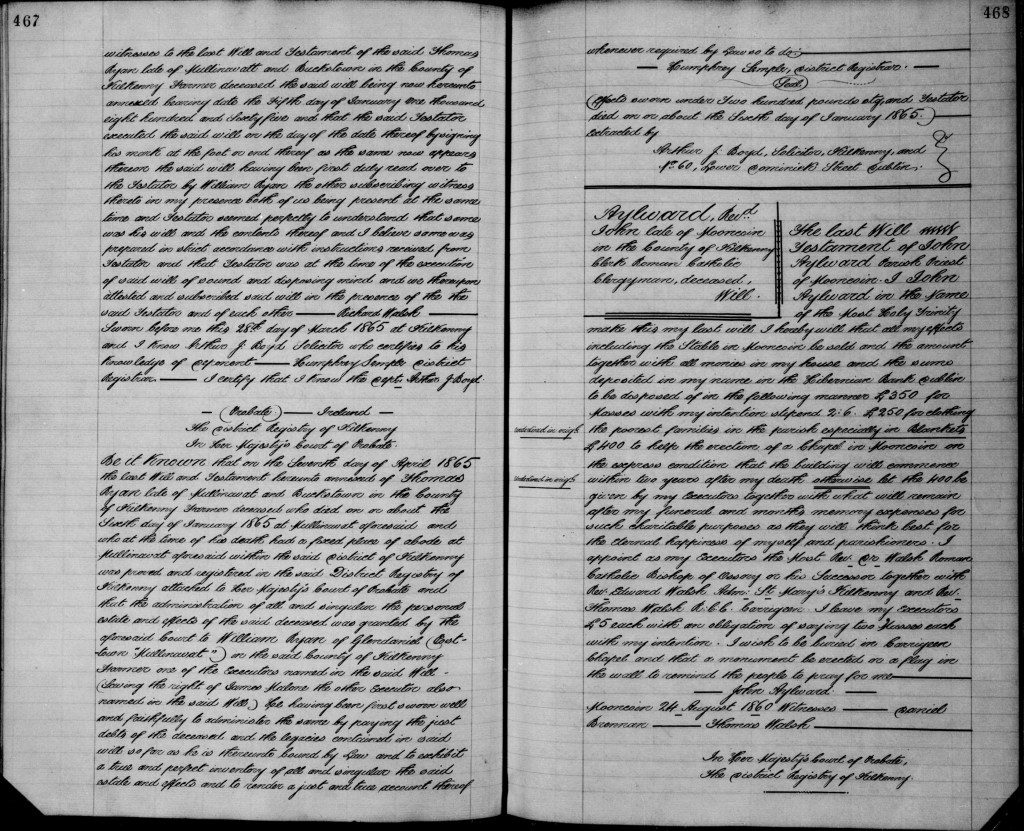 467
witnesses to the last Will and Testament of the said Thomas
Ryan late of Mullinavatt and Buckstown in the County of
Kilkenny Farmer deceased the said will being now hereunto
annexed bearing date the Fifth day of January one thousand
eight hundred and Sixty five and that the said Testator
executed the said will on the day of the date thereof by signing
his mark at the foot or end thereof as the same now appears
thereon the said will having been first duly read over to
the Testator by William Ryan the other subscribing witness
thereto in my presence both of us being present at the same
time and Testator seemed perfectly to understand that same
was his will and the contents thereof and I believe same was
prepared in strict accordance with instructions received from
Testator and that Testator was at the time of the execution
of said will of sound and disposing mind and we thereupon
attested and subscribed said will in the presence of the the
said Testator and of each other — Richard Walsh —
Sworn before me this 28th day of March 1865 at Kilkenny
and I know Arthur J. Boyd Solicitor who certifies to his
knowledge of deponent — Humphrey Semple District
Registrar — I certify that I know the Dept. Arthur J Boyd
— (Probate) — Ireland —
The District Registry of Kilkenny
In Her Majesty's Court of Probate.
Be it Known that on the Seventh day of April 1865
the last Will and Testament hereunto annexed of Thomas
Ryan late of Mullinavat and Buckstown in the County
of Kilkenny Farmer deceased who died on or about the
Sixth day of January 1865 at Mullinavat aforesaid and
who at the time of his death had a fixed place of abode at
Mullinavat aforesaid within the said District of Kilkenny
was proved and registered in the said District Registry of
Kilkenny attached to Her Majesty's Court of Probate and
that the administration of all and singular the personal
estate and effects of the said deceased was granted by the
aforesaid Court to William Ryan of Glendanish (Post-
town "Mullinavat") in the said County of Kilkenny
Farmer one of the Executors named in the said Will.
(Saving the right of James Malone the other Executor also
named in the said Will.) He having been first sworn well
and faithfully to administer the same by paying the just
debts of the deceased and the legacies contained in said
will so far as he is thereunto bound by Law and to exhibit
a true and perfect inventory of all and singular the said
estate and effects and to render a just and true account thereof
468
whenever required by Law so to do;
— Humphrey Semple, District Registrar. —
Seal
(Effects sworn under Two hundred pounds stg and Testator
died on or about the Sixth day of January 1865.)
extracted by
Arthur J. Boyd, Solicitor, Kilkenny, and
No. 60, Lower Dominick Street Dublin;
Aylward, Revd.
John late of Mooncoin
in the County of Kilkenny
Clerk Roman Catholic
Clergyman, deceased,
Will.
The last Will
Testament of John
Aylward Parish Priest
of Mooncoin I John
Aylward in the Name
of the Most Holy Trinity
make this my last will I hereby will that all my effects
including the Stable in Mooncoin be sold and the amount
together with all monies in my house and the sums
deposited in my name in the Hibernian Bank Dublin
to be disposed of in the following manner £350 for
Masses with my intention stipend 2.6. £250 for clothing
underlined in origl.
the poorest families in the parish especially in Blankets
£400 to help the erection of a Chapel in Mooncoin on
the express condition that the building will commence
underlined in origl.
within two years after my death otherwise let the 400 be
given by my Executors together with what will remain
after my funeral and months memory expenses for
such charitable purposes as they will think best for
the eternal happiness of myself and parishioners. I
appoint as my Executors the Most Rev. Dr. Walsh Roman
Catholic Bishop of Ossory or his Successor together with
Rev. Edward Walsh Adm: St. Mary's Kilkenny and Rev.
Thomas Walsh R.C.C. Carrigeen. I leave my Executors
£5 each with an obligation of saying two Masses each
with my intention. I wish to be buried in Carrigeen
Chapel and that a monument be erected or a flag in
the wall to remind the people to pray for me
— John Aylward —
Mooncoin 24 August 1860 Witnesses — Daniel
Brennan — Thomas Walsh
In Her Majesty's Court of Probate,
The District Registry of Kilkenny.